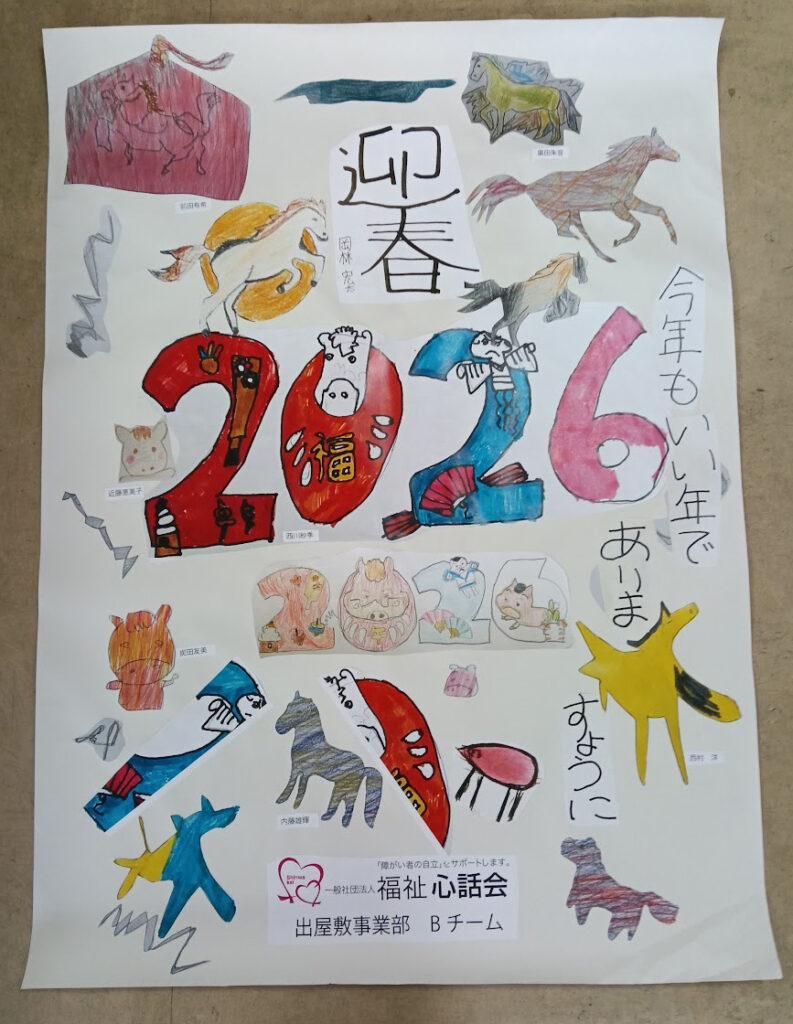 迎春
岡林 宏
前田有希
2026
今年もいい年で
ありま
すように
近藤恵美子
西川紗季
2026
炭田友美
西村 洋
内藤雄輝
「障がい者の自立」をサポートします。
一般社団法人 福祉 心話会
出屋敷事業部 Bチーム
福